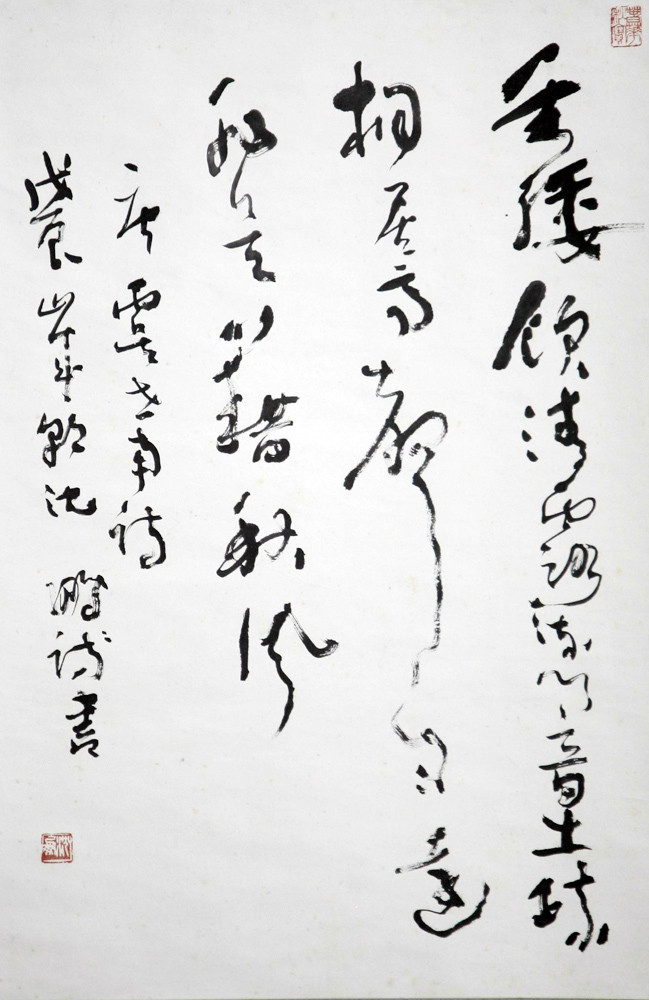 垂緌飲清露流響出疏
桐居高聲自遠
非是藉秋風
唐虞世南詩
戊辰歲朝沈鵬試書